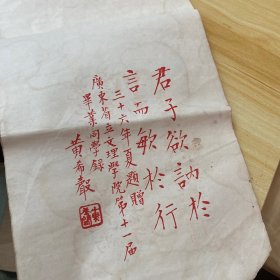 君子欲訥於
言而敏於行
三十六年夏題贈
廣東省立文理學院第十一屆
畢業同學錄
黃希聲